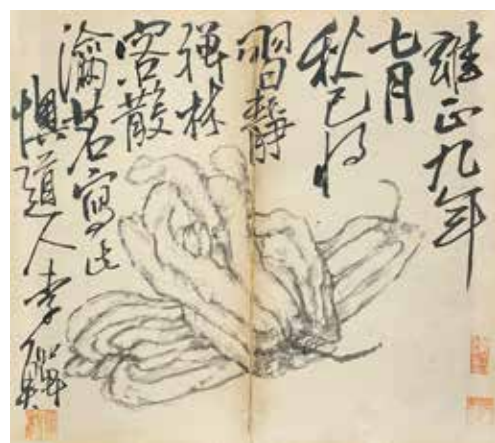 雍正九年
七月
秋已
習靜
禪林
客散
瀹茗寫此
懊道人李鱓